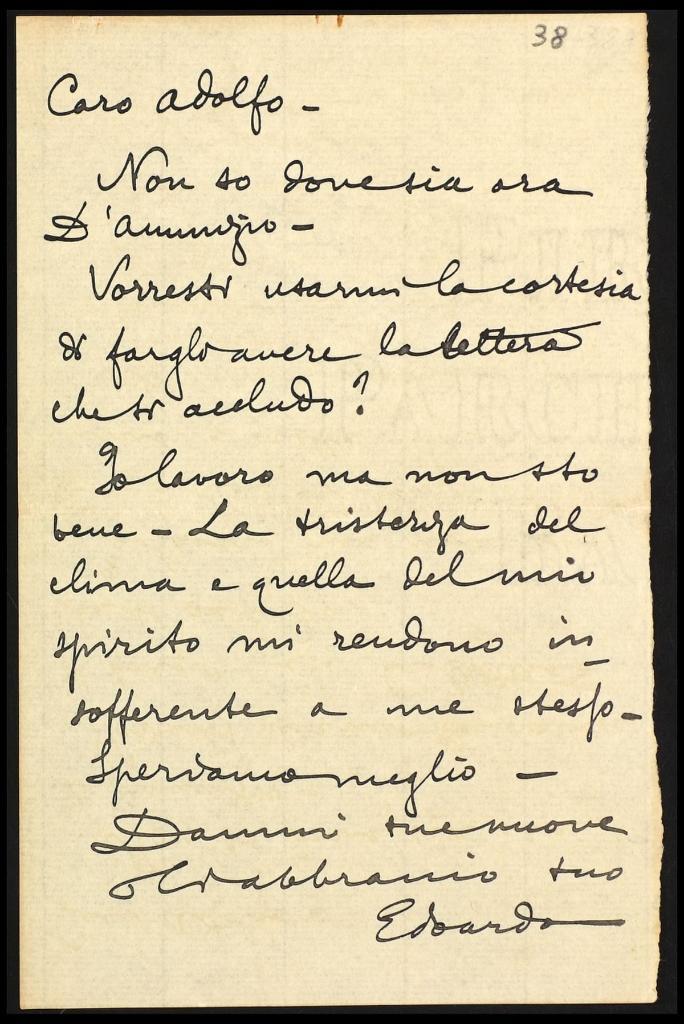 38
Caro Adolfo -
Non so dove sia ora
D'Annunzio -
Vorresti usarmi la cortesia
di fargli avere la lettera
che ti accludo?
Io lavoro ma non sto
bene - La tristezza del
clima e quella del mio
spirito mi rendono in-
sofferente a me stesso -
Speriamo meglio -
Dammi tue nuove
e abbraccio tuo
Edoardo